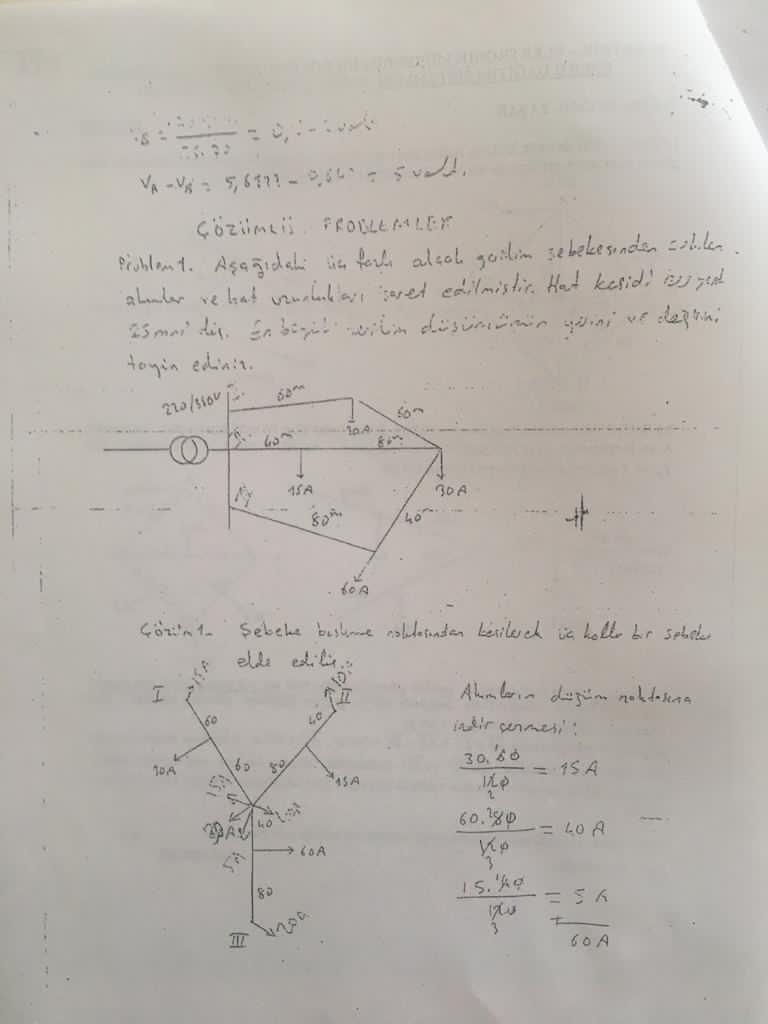 = 0,
VA - VB = 5,6 - 0,6 = 5 volt.
ÇÖZÜMLÜ PROBLEMLER
Problem 1. Aşağıdaki üç fazlı alçak gerilim şebekesinden çekilen
akımlar ve hat uzunlukları işaret edilmiştir. Hat kesidi her yerde
25 mm² dir. En büyük gerilim düşümünün yerini ve değerini
tayin ediniz.
220/380V
60m
60m
30A
40m
80m
15A
30A
80m
40m
60A
Çözüm 1- Şebeke besleme noktasından kesilerek üç kollu bir şebeke
elde edilir.
I
15A
II
60
40
30A
60
80
15A
15A
40
60A
5A
80
III
20A
Akımların düğüm noktasına
indirgenmesi:
30.60
120
2
= 15A
60.80
120
3
= 40A
15.40
120
3
= 5A
+
60A